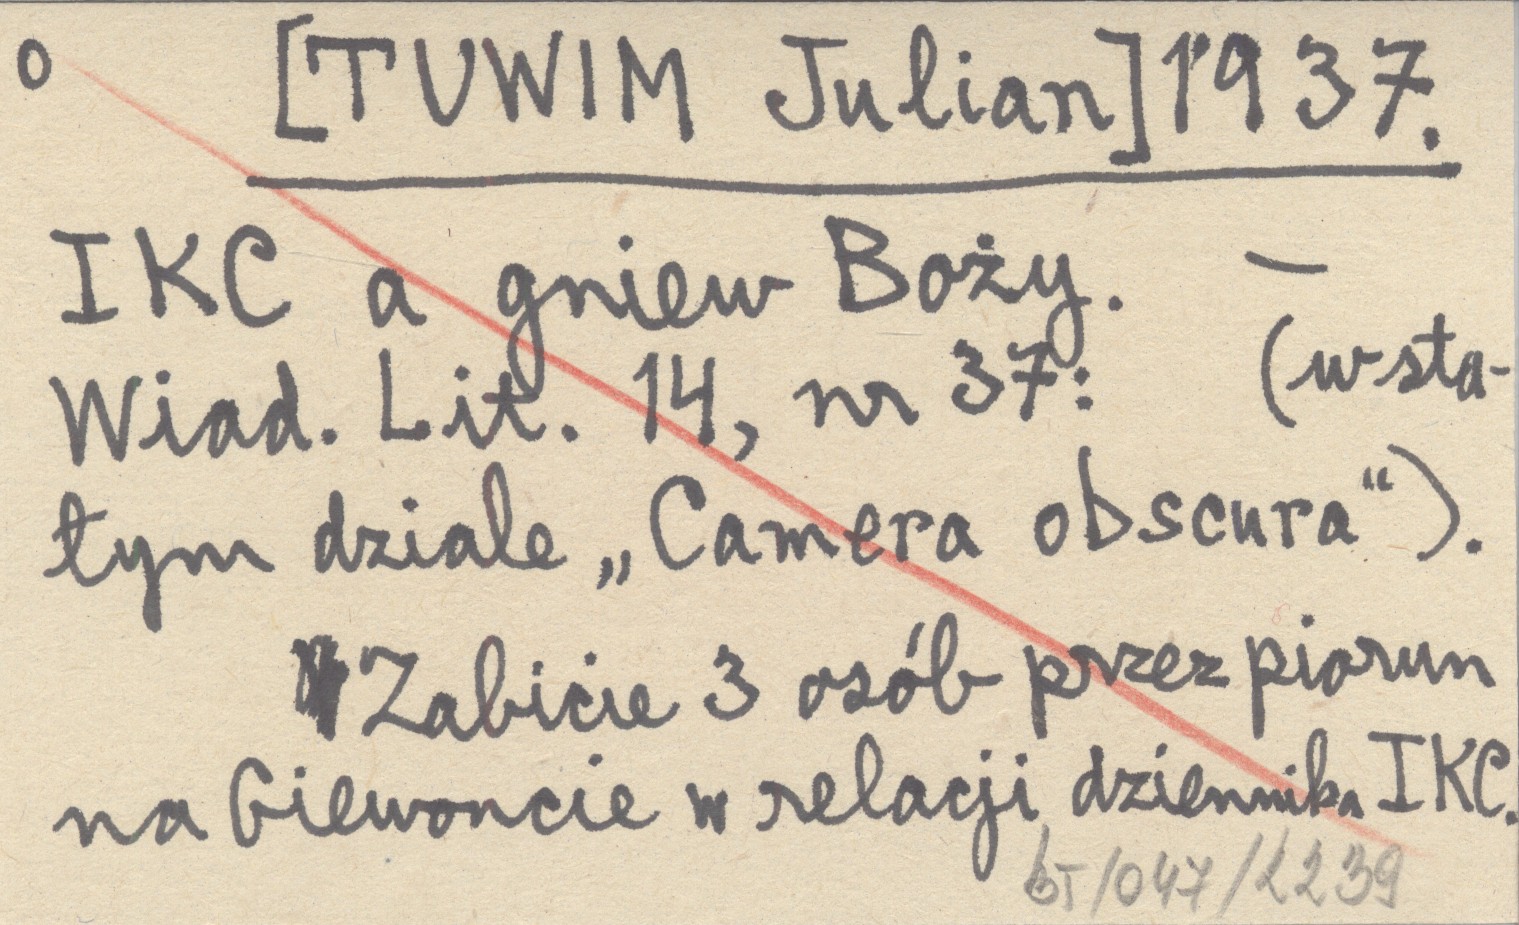 o [TUWIM Julian] 1937.
IKC a gniew Boży. —
Wiad. Lit. 14, nr 37: (w sta-
łym dziale „Camera obscura“).
Zabicie 3 osób przez piorun
na Giewoncie w relacji dziennika IKC.
BT/047/2239